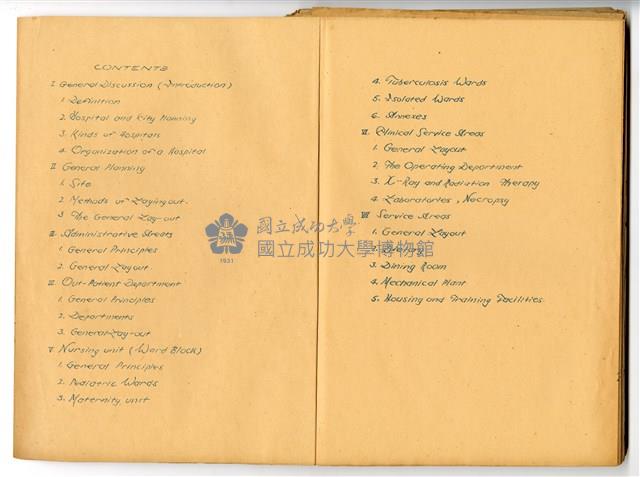 CONTENTS
I General Discussion (Introduction)
1. Definition
2. Hospital and City Planning
3. Kinds of Hospitals
4. Organization of a Hospital
II General Planning
1. Site
2. Methods of Laying out.
3 The General Lay-out
III Administrative Areas
1. General Principles
2. General Layout
IV Out-Patient Department
1. General Principles
2. Departments
3. General Lay-out
V Nursing unit (Ward Block)
1. General Principles
2. Pediatric Wards
3. Maternity unit
4. Tuberculosis Wards
5. Isolated Wards
6. Annexes
VI Clinical Service Areas
1. General Layout
2. The Operating Department
3. X-Ray and Radiation Therapy
4. Laboratories, Necropsy
VII Service Areas
1. General Layout
2.
3. Dining Room
4. Mechanical Plant
5. Housing and Training Facilities
國立成功大學
國立成功大學博物館
1931